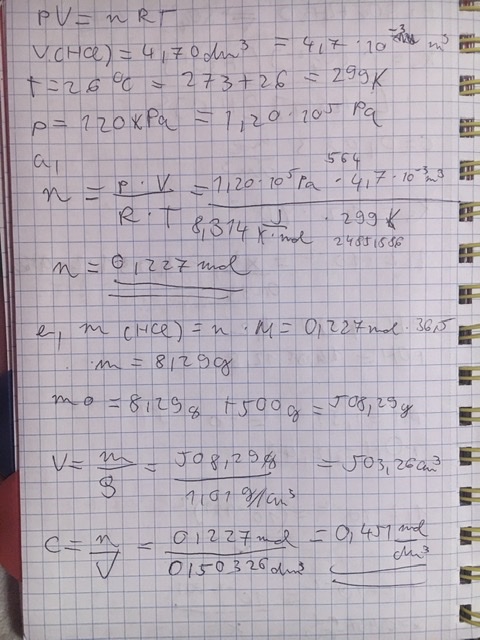 PV = nRT
V(HCl) = 4,70 dm³ = 4,7 · 10⁻³ m³
t = 26 °C = 273 + 26 = 299 K
p = 120 kPa = 1,20 · 10⁵ Pa
a,
564
n = p · V / R · T = 1,20 · 10⁵ Pa · 4,7 · 10⁻³ m³ / 8,314 J / K · mol · 299 K
n = 0,227 mol
e, m (HCl) = n · M = 0,227 mol · 36,5
m = 8,29 g
mo = 8,29 g + 500 g = 508,29 g
V = m / ρ = 508,29 g / 1,01 g/cm³ = 503,26 cm³
c = n / V = 0,227 mol / 0,50326 dm³ = 0,451 mol / dm³